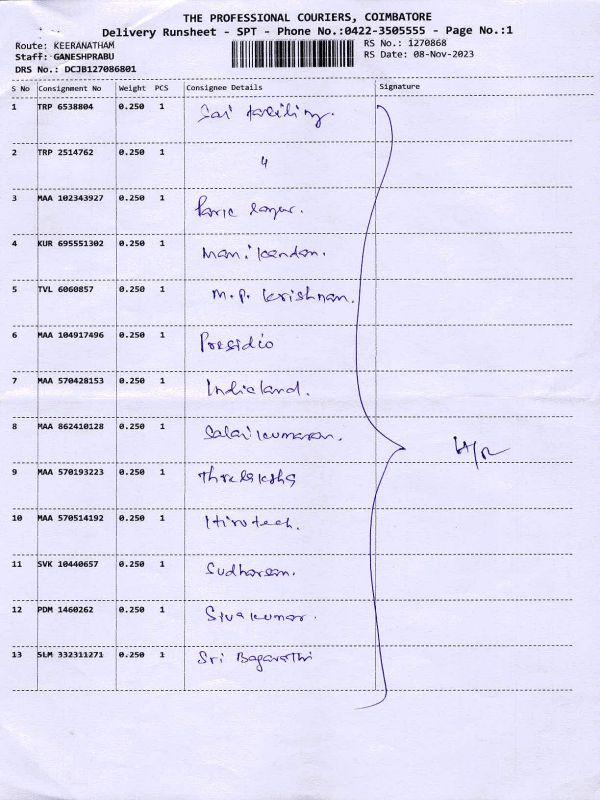 THE PROFESSIONAL COURIERS, COIMBATORE
Delivery Runsheet - SPT - Phone No.:0422-3505555 - Page No.:1
Route: KEERANATHAM RS No.: 1270868
Staff: GANESHPRABU RS Date: 08-Nov-2023
DRS No.: DCJB127086801
S No Consignment No Weight PCS Consignee Details Signature
1 TRP 6538804 0.250 1 Sai
2 TRP 2514762 0.250 1 4
3 MAA 102343927 0.250 1
4 KUR 695551302 0.250 1 Manikandan.
5 TVL 6060857 0.250 1 M.P. Krishnan.
6 MAA 104917496 0.250 1 Presidio
7 MAA 570428153 0.250 1 Indialand.
8 MAA 862410128 0.250 1 Salaikumaran.
9 MAA 570193223 0.250 1
10 MAA 570514192 0.250 1 Hirotech.
11 SVK 10440657 0.250 1 Sudharsan.
12 PDM 1460262 0.250 1 Sivakumar.
13 SLM 332311271 0.250 1 Sri Bagavathi